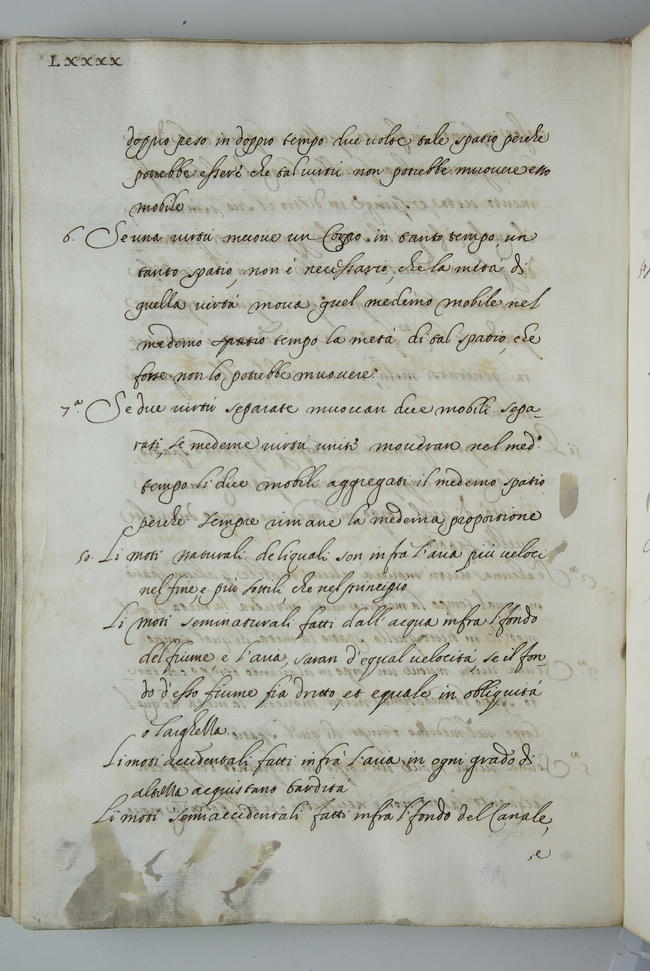 LXXXX
doppio peso in doppio tempo due volte tale spatio perche
potrebbe essere che tal virtù non potrebbe muovere esso
mobile
6. Se una virtù muove un Corpo in tanto tempo, un
tanto spatio, non é necessario, che la metà di
quella virtù mova quel medemo mobile nel
medemo spatio tempo la metà di tal spatio, che
forse non lo potrebbe muovere.
7.ª Se due virtù separate muovan due mobili sepa-
rati, le medeme virtù unite moveran nel med.º
tempo li due mobili aggregati il medemo spatio
perche sempre rimane la medema proportione
50. Li moti naturali deliquali son infrà l'aria più veloci
nel fine, e più sottili, che nel principio
Li moti seminaturali fatti dall'acqua infra l'fondo
del fiume, e l'aria, saran d'equal velocità, se il fon-
do d'esso fiume fia dritto, et equale in obliquità
o larghezza.
Li moti accidentali fatti infrà l'aria in ogni grado di
altezza acquistano tardità
Li moti semiaccidentali fatti infra l'fondo del Canale,
,e